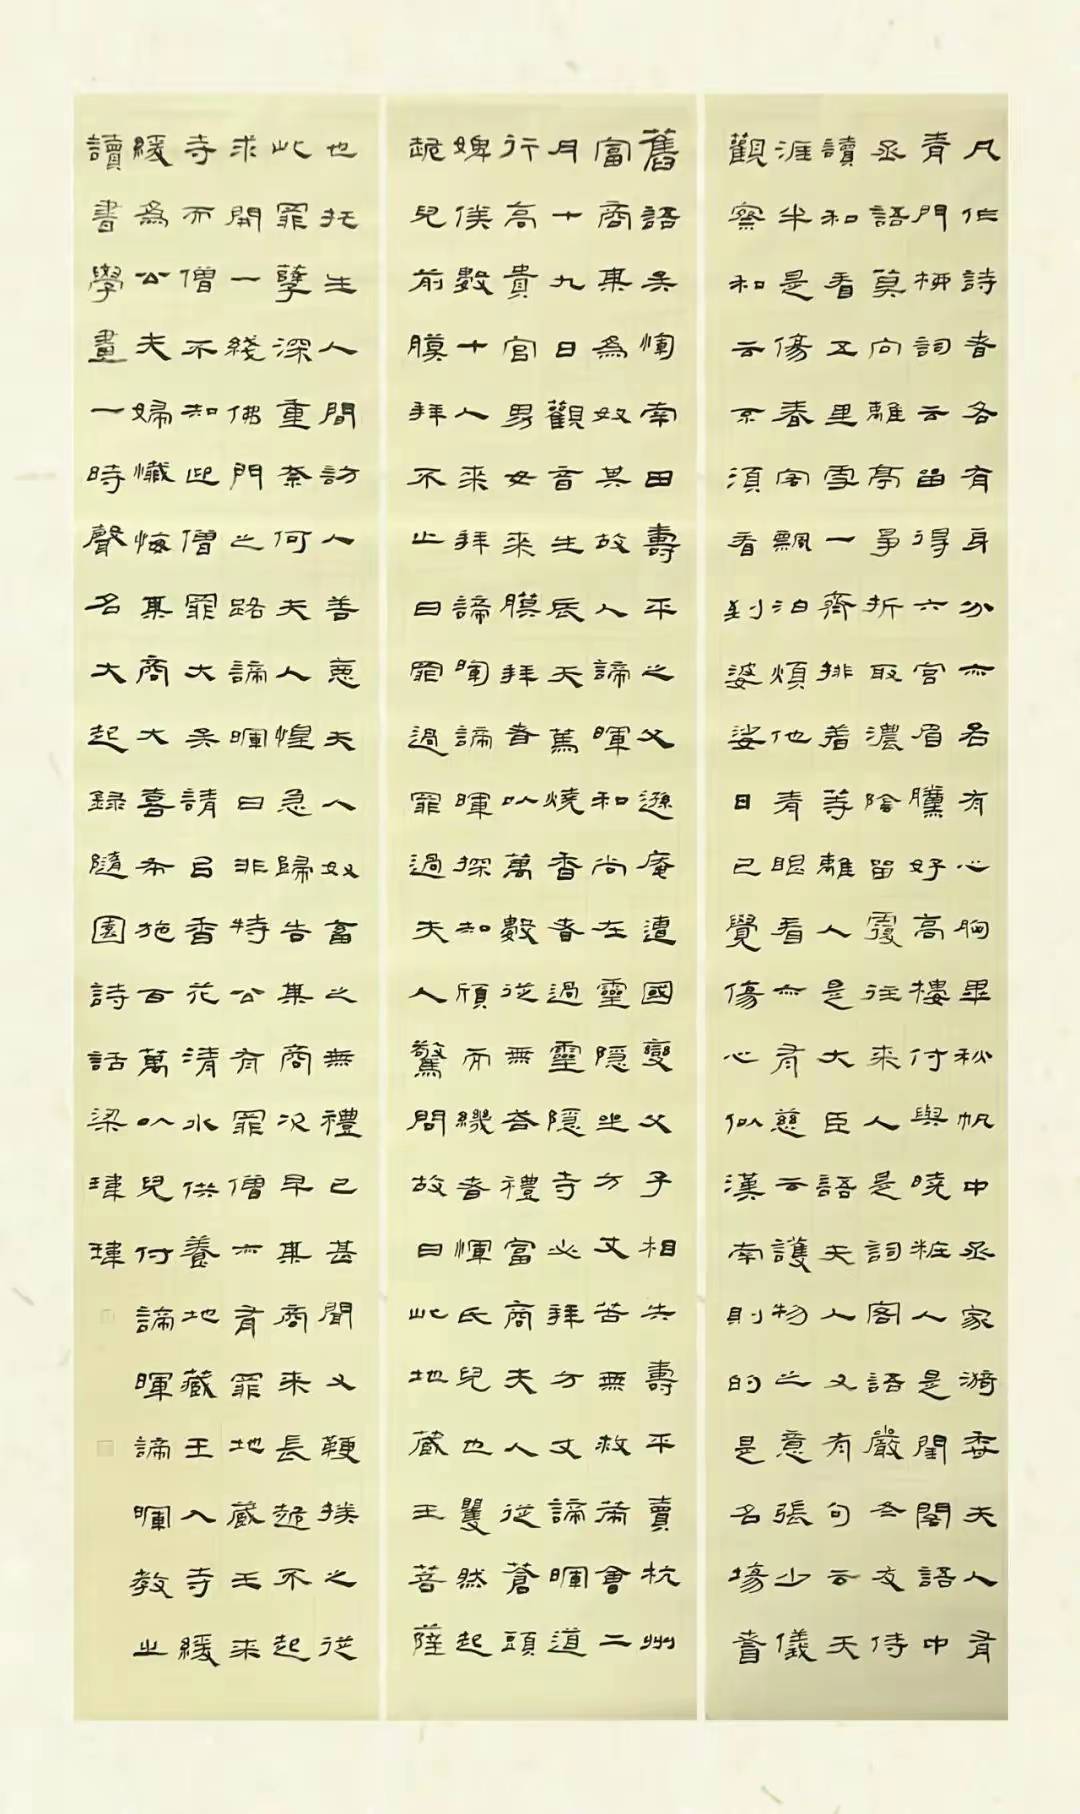 凡作詩者各有身分亦各有心胸畢秋帆中丞家漪香夫人有
青門柳詞云留得六宮眉黛好高樓付與曉粧人是閨閤語中
丞語莫向離亭爭折取濃陰留覆往來人是詞客語嚴冬友侍
讀和看五里雪一齊排着等離人是大臣語夫人又有句云天
涯半是傷春客飄泊煩他青眼看亦有慈云護物之意張少儀
觀察和云不須看到婆娑日已覺傷心似漢南則的是名場耆
舊語吳惲南田壽平之父遜庵遭國變父子相失壽平賣杭州
富商某為奴其故人諦暉和尚在靈隱坐方丈苦無救策會二
月十九日觀音生辰天篤燒香者過靈隱寺必拜方丈諦暉道
行高貴官男女來膜拜者以萬數從無答禮富商夫人從蒼頭
婢僕數十人來拜諦暉諦暉探知頎而纖者惲氏兒也矍然起
跪兒前膜拜不止曰罪過罪過夫人驚問故曰此地藏王菩薩
也托生人間訪人善惡夫人奴畜之無禮已甚聞又鞭撲之從
此罪孽深重奈何夫人惶急歸告某商次早某商來長跪不起
求開一綫佛門之路諦暉曰非特公有罪僧亦有罪地藏王來
寺而僧不知迎僧罪大矣請以香花清水供養地藏王入寺緩
緩為公夫婦懺悔某商大喜布施百萬以兒付諦暉諦暉教之
讀書學畫一時聲名大起録隨園詩話梁瑋瑋